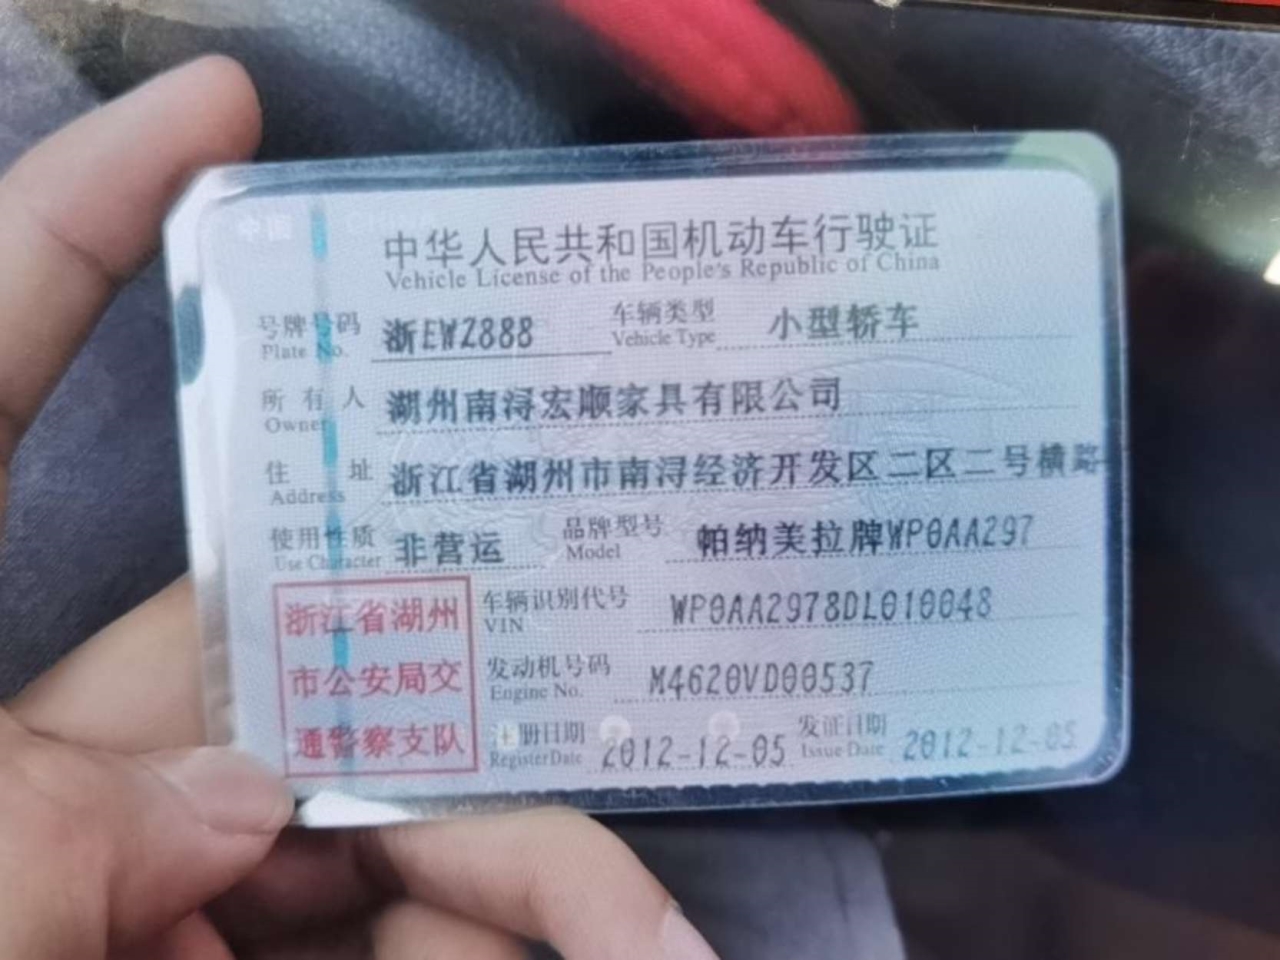 中华人民共和国机动车行驶证
Vehicle License of the People's Republic of China
号牌号码 浙EWZ888 车辆类型 小型轿车
Plate No. Vehicle Type
所有人 湖州南浔宏顺家具有限公司
Owner
住址 浙江省湖州市南浔经济开发区二区二号横路
Address
使用性质 非营运 品牌型号 帕纳美拉牌WP0AA297
Use Character Model
浙江省湖州 车辆识别代号 WP0AA2978DL010048
VIN
市公安局交 发动机号码 M4620VD00537
Engine No.
通警察支队 注册日期 2012-12-05 发证日期 2012-12-05
Register Date Issue Date